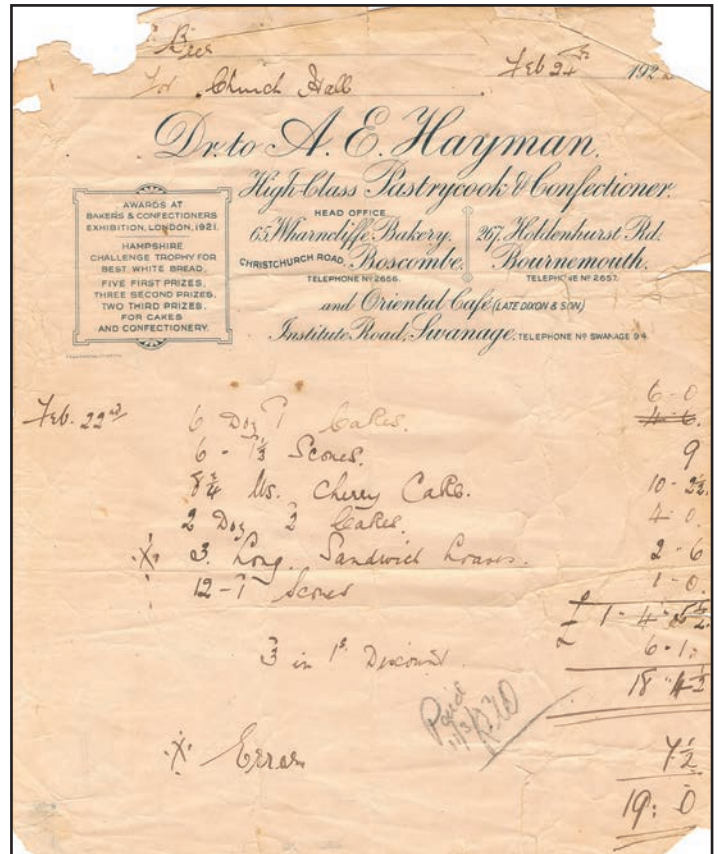 For Church Hall Feb 24th 192
Dr. to A. E. Hayman.
High-Class Pastrycook & Confectioner.
AWARDS AT
BAKERS & CONFECTIONERS
EXHIBITION, LONDON, 1921.
HAMPSHIRE
CHALLENGE TROPHY FOR
BEST WHITE BREAD.
FIVE FIRST PRIZES,
THREE SECOND PRIZES,
TWO THIRD PRIZES,
FOR CAKES
AND CONFECTIONERY.
HEAD OFFICE
65 Wharncliffe Bakery,
CHRISTCHURCH ROAD, Boscombe.
TELEPHONE Nº 2666.
267, Holdenhurst Rd.
Bournemouth.
TELEPHONE Nº 2657.
and Oriental Café (LATE DIXON & SON)
Institute Road, Swanage. TELEPHONE Nº SWANAGE 94.
6 - 0
Feb. 22nd 6 Doz 1 Cakes. 4 - 6.
6 - 1½ Scones. 9
8¾ lbs. Cherry Cake. 10 - 2½
2 Doz 2 Cakes. 4 - 0.
3. Long. Sandwich Loaves. 2 - 6
12 - 1 Scones 1 - 0.
£ 1 - 4 - 5½
3 in 1s. Discount. 6 - 1
18 - 4½
Paid
11/3/
Error 7½
19 : 0